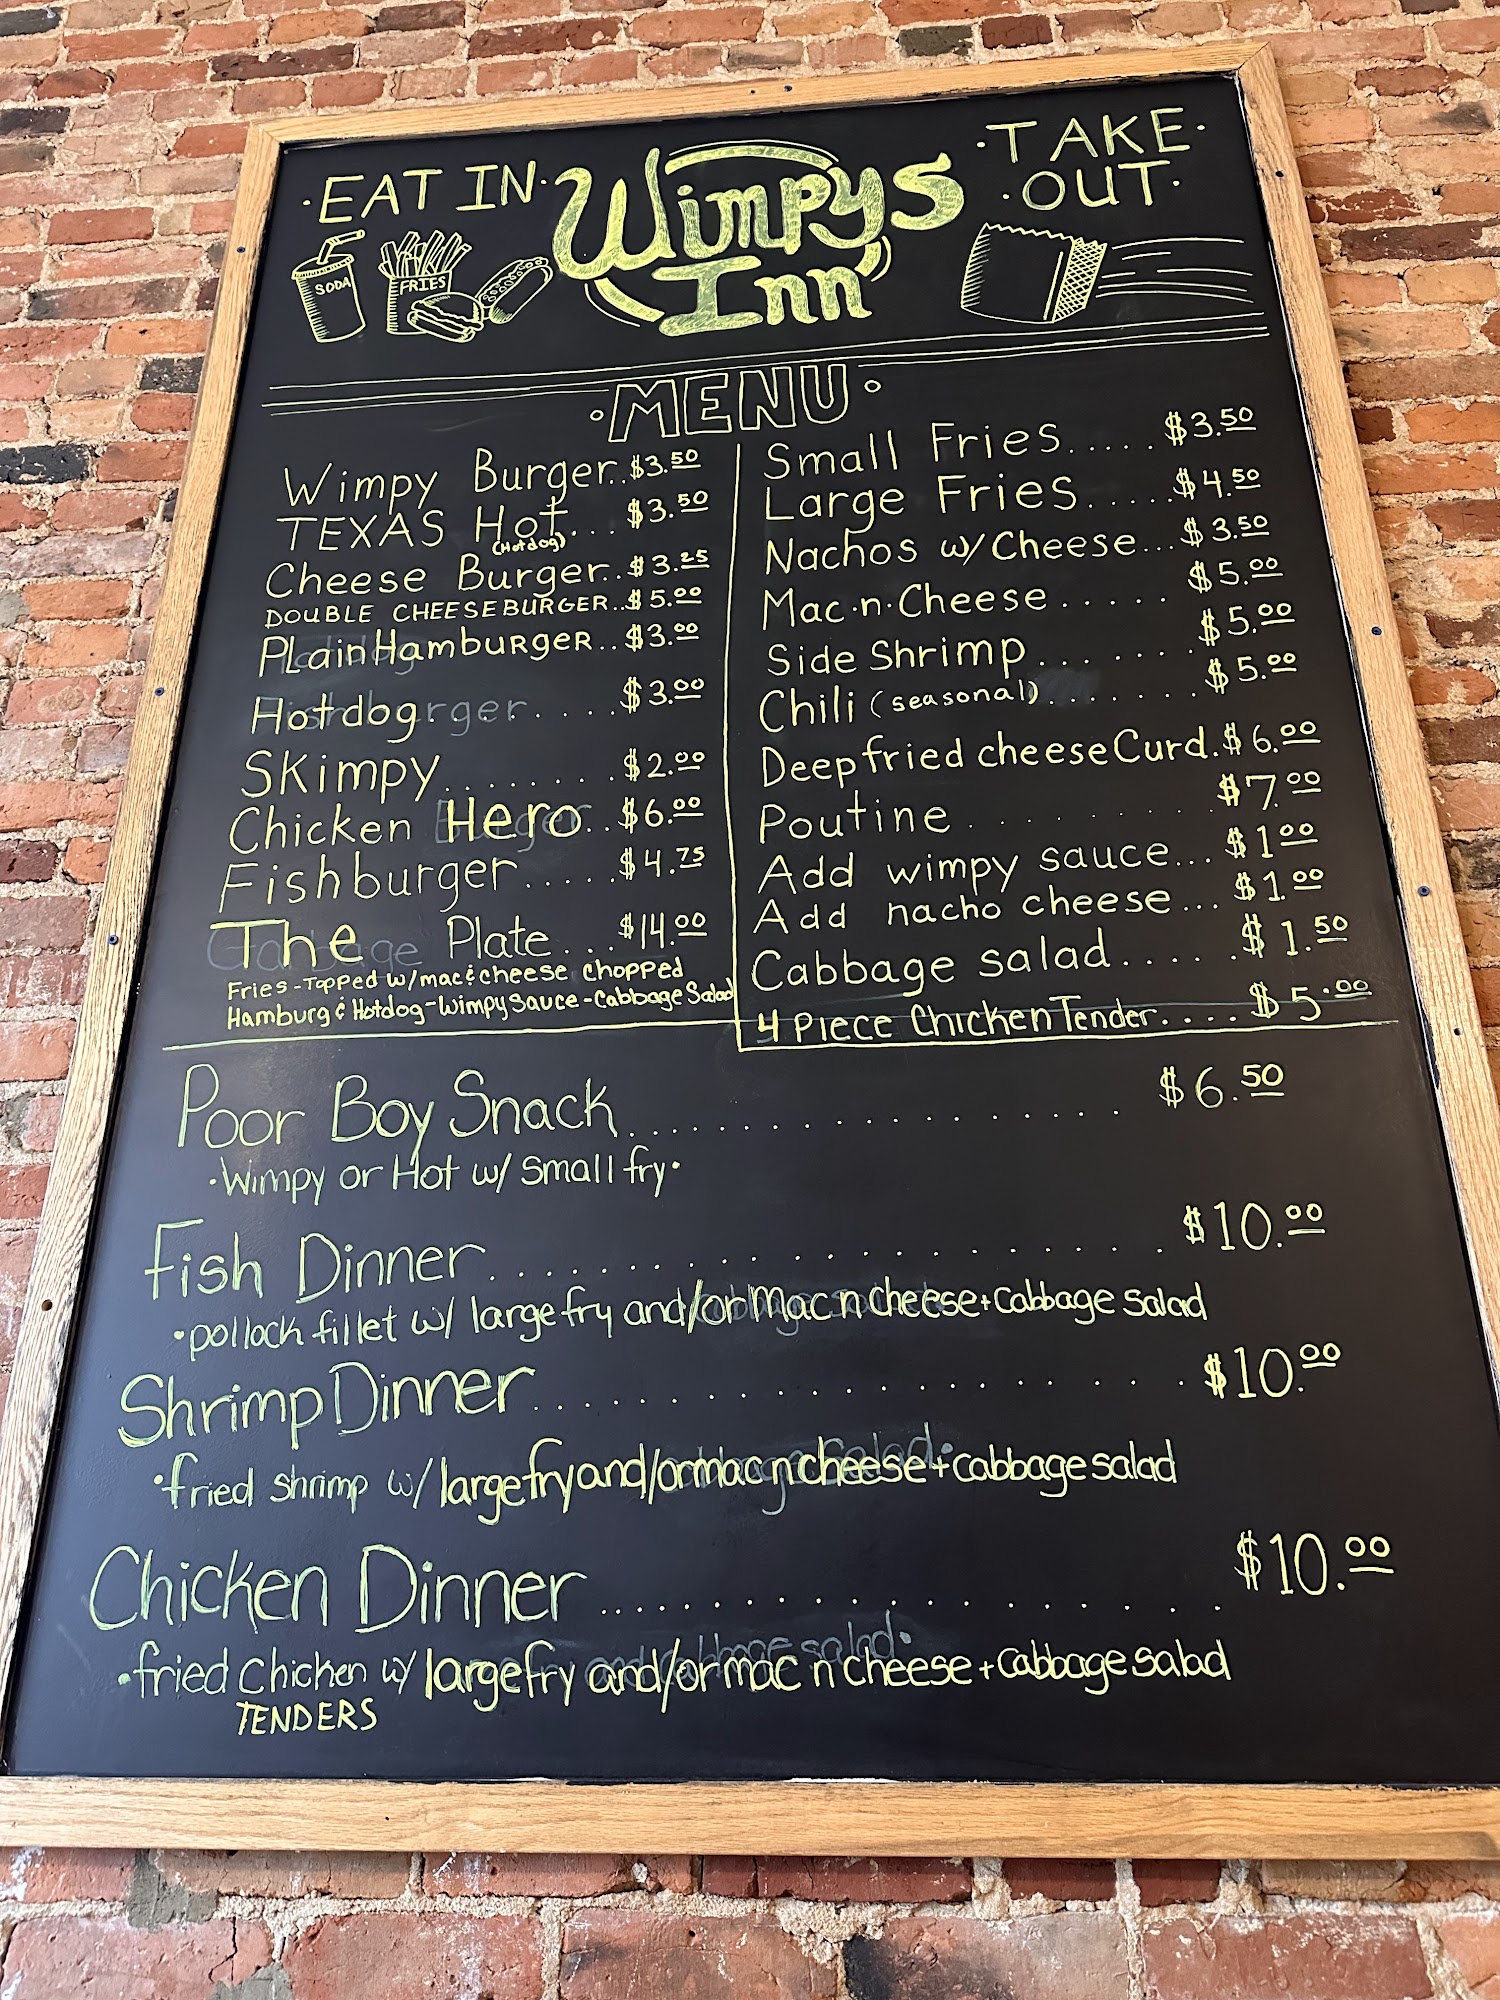 ·EAT IN·
Wimpys
Inn
·TAKE·
·OUT·
SODA
FRIES
·MENU·
Wimpy Burger..$3.50
TEXAS Hot...$3.50
(Hotdog)
Cheese Burger..$3.25
DOUBLE CHEESEBURGER..$5.00
PLain HambuRgeR..$3.00
Hotdog........$3.00
Skimpy.......$2.00
Chicken Hero..$6.00
Fishburger.....$4.75
The Plate...$14.00
Fries-Topped w/mac&cheese Chopped
Hamburg & Hotdog-Wimpy Sauce-Cabbage Salad
Small Fries.....$3.50
Large Fries.....$4.50
Nachos w/Cheese...$3.50
Mac·n·Cheese.....$5.00
Side Shrimp.......$5.00
Chili (seasonal)......$5.00
Deep fried cheese Curd.$6.00
Poutine........$7.00
Add wimpy sauce...$1.00
Add nacho cheese...$1.00
Cabbage salad.....$1.50
4 Piece Chicken Tender....$5.00
Poor Boy Snack................$6.50
·Wimpy or Hot w/ Small fry·
Fish Dinner..................$10.00
·pollock fillet w/ large fry and/or Mac n Cheese+Cabbage Salad
Shrimp Dinner..................$10.00
·fried shrimp w/ large fry and/or mac n cheese+cabbage salad
Chicken Dinner..................$10.00
·fried Chicken w/ large fry and/or mac n cheese+Cabbage Salad
TENDERS